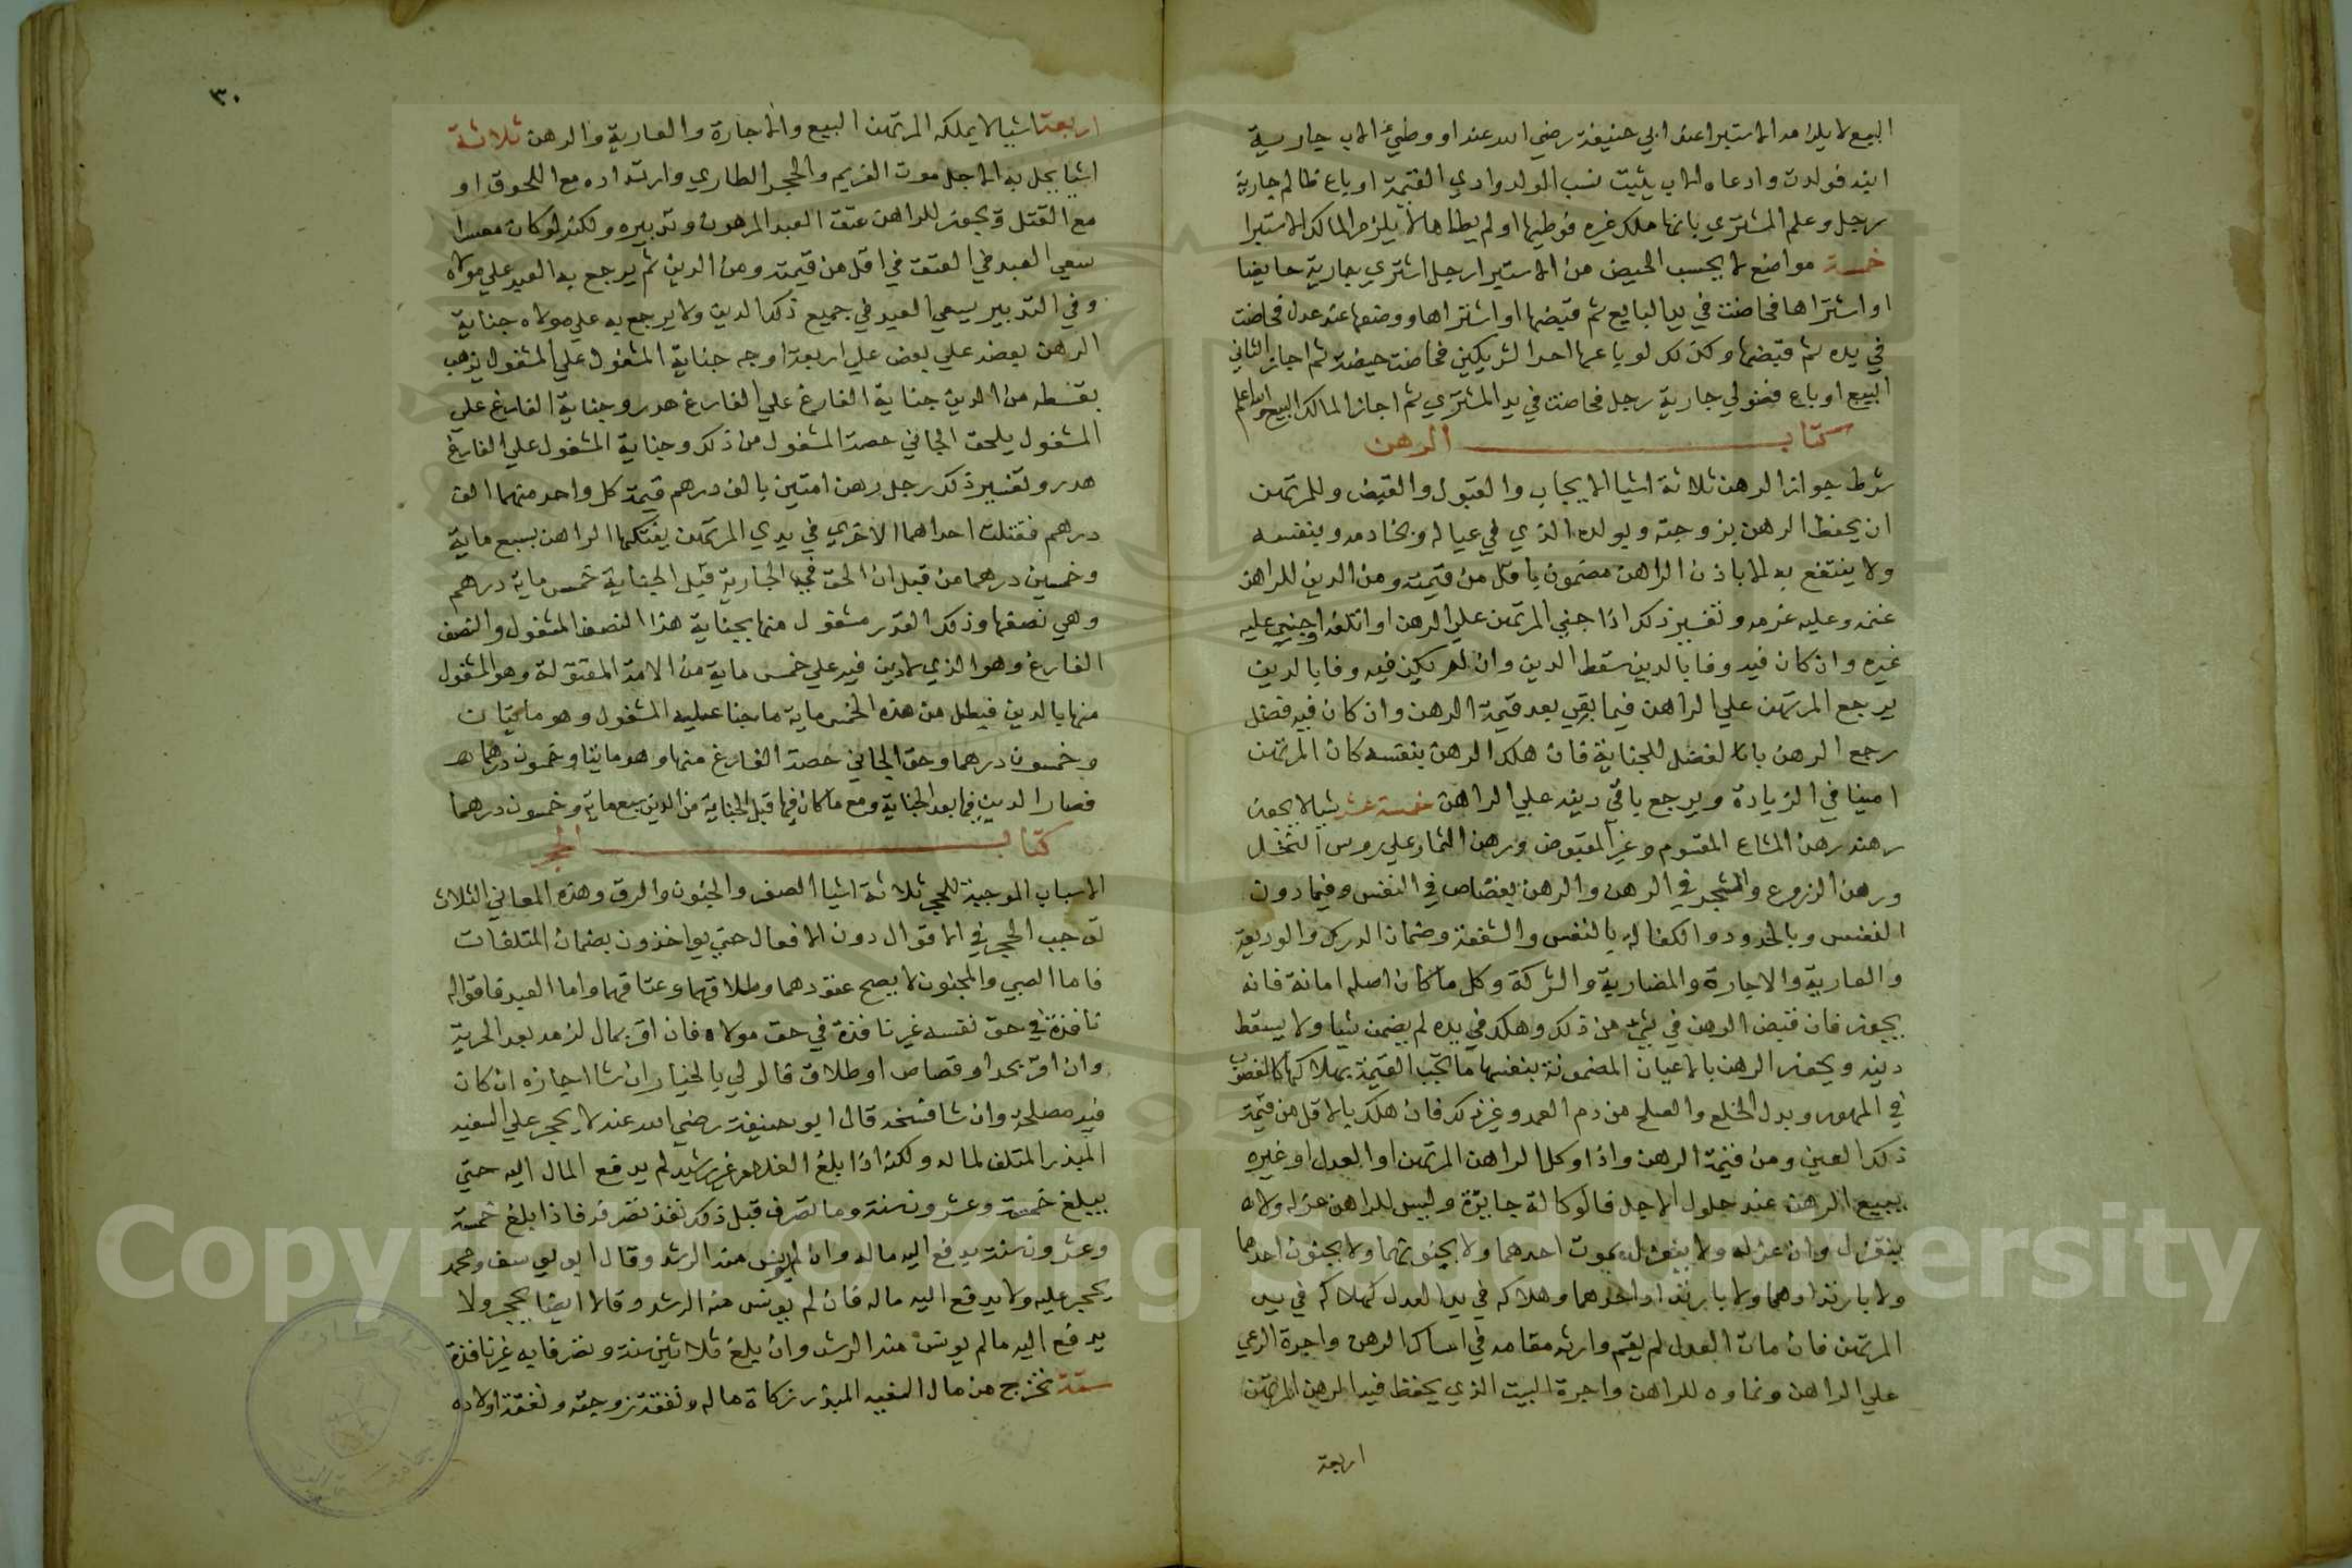 البيع لا يلزمه الاستبرا عند ابي حنيفة رضي الله عنه او وطي الاب جارية
ابنه فولدت وادعاه الاب يثبت نسب الولد وادي القيمة او باع ظالم جارية
رجل وعلم المشتري بانها ملك غيره فوطيها او لم يطاها لا يلزم المالك الاستبرا
خمسة مواضع لا يحسب الحيض من الاستبرا رجل اشتري جارية حايضا
او اشتراها فحاضت في يد البايع ثم قبضها او اشتراها ووضعها عند عدل فحاضت
في يده ثم قبضها وكذلك لو باعها احد الشريكين فحاضت حيضة ثم اجاز الثاني
البيع او باع فضولي جارية رجل فحاضت في يد المشتري ثم اجاز المالك البيع والله اعلم
كتاب الرهن
شرط جواز الرهن ثلاثة اشيا الايجاب والقبول والقبض وللمرتهن
ان يحفظ الرهن بزوجته وبولده الذي في عياله وبخادمه وبنفسه
ولا ينتفع به الا باذن الراهن مضمون باقل من قيمته ومن الدين للراهن
غنمه وعليه غرمه وتفسير ذلك اذا جني المرتهن علي الرهن او اتلفه او جني عليه
غيره وان كان فيه وفا بالدين سقط الدين وان لم يكن فيه وفا بالدين
يرجع المرتهن علي الراهن فيما بقي بعد قيمة الرهن وان كان فيه فضل
رجع الرهن بالفضل للجناية فان هلك الرهن بنفسه كان المرتهن
امينا في الزيادة ويرجع باقي دينه علي الراهن خمسة عشر شيا لا يجوز
رهنه رهن المشاع المقسوم وغير المقبوض ورهن الثمار علي روس النخل
ورهن الزروع والشجر في الرهن والرهن بقصاص في النفس وفيما دون
النفس وبالحدود والكفالة بالنفس والشفعة وضمان الدرك والوديعة
والعارية والاجارة والمضاربة والشركة وكل ما كان اصله امانة فانه
يجوز فان قبض الرهن في شي من ذلك وهلك في يده لم يضمن شيا ولا يسقط
دينه ويجوز الرهن بالاعيان المضمونة بنفسها ما تجب القيمة بهلاكها كالغصوب
في المهور وبدل الخلع والصلح من دم العمد وغير ذلك فان هلك بالاقل من قيمة
ذلك العين ومن قيمة الرهن واذا وكل الراهن المرتهن او العدل او غيره
يبيع الرهن عند حلول الاجل فالوكالة جايزة وليس للراهن عزله ولا
ينعزل وان عزله ولا ينعزل بموت احدهما ولا بجنونهما ولا بجنون احدهما
ولا بارتدادهما ولا بارتداد احدهما وهلاكه في يد العدل كهلاكه في يد
المرتهن فان مات العدل لم يقم وارثه مقامه في امساك الرهن واجرة الرعي
علي الراهن ونماوه للراهن واجرة البيت الذي يحفظ فيه الرهن المرتهن
اربعة
٣٠
اربعة اشيا لا يملكه المرتهن البيع والاجارة والعارية والرهن ثلاثة
اشيا يحل به الاجل موت الغريم والحجر الطاري وارتداده مع اللحوق او
مع القتل ويجوز للراهن عتق العبد المرهون وتدبيره ولكنه لو كان معسرا
سعي العبد في العتق في اقل من قيمته ومن الدين ثم يرجع به العبد علي مولاه
وفي التدبير يسعي العبد في جميع ذلك الدين ولا يرجع به علي مولاه جناية
الرهن بعضه علي بعض علي اربعة اوجه جناية المشغول علي المشغول يذهب
بقسطه من الدين جناية الفارغ علي الفارغ هدر وجناية الفارغ علي
المشغول يلحق الجاني حصة المشغول من ذلك وجناية المشغول علي الفارغ
هدر وتفسير ذلك رجل رهن امتين بالف درهم قيمة كل واحد منهما الف
درهم فقتلت احداهما الاخري في يدي المرتهن يفتكها الراهن بسبع ماية
وخمسين درهما من قبل ان الحق في الجارية قبل الجناية خمس ماية درهم
وهي نصفها وذلك القدر مشغول منها بجناية هذا النصف المشغول والنصف
الفارغ وهو الذي لا دين فيه علي خمس ماية من الامة المقتولة وهو المشغول
منها بالدين فيبطل من هذه الخمس ماية ما جنا عليه المشغول وهو مايتان
وخمسون درهما وحق الجاني حصة الفارغ منها وهو مايتا وخمسون درهما
فصار الدين فيما بعد الجناية ومع ما كان فيها قبل الجناية من الدين سبع ماية وخمسون درهما
كتاب الحجر
الاسباب الموجبة للحجر ثلاثة اشيا الصغر والجنون والرق وهذه المعاني الثلاث
توجب الحجر في الاقوال دون الافعال حتي يواخذون بضمان المتلفات
فاما الصبي والمجنون لا يصح عقودهما وطلاقهما وعتاقهما واما العبد فاقواله
نافذة في حق نفسه غير نافذة في حق مولاه فان اقر بمال لزمه بعد الحرية
وان اقر بحد او قصاص او طلاق فالولي بالخيار ان شا اجازه ان كان
فيه مصلحة وان شا فسخه قال ابو حنيفة رضي الله عنه لا يحجر علي السفيه
المبذر المتلف لماله ولكنه اذا بلغ الغلام غير رشيد لم يدفع المال اليه حتي
يبلغ خمسة وعشرون سنة وما تصرف قبل ذلك نفذ تصرفه فاذا بلغ خمسة
وعشرون سنة يدفع اليه ماله وان لم يونس منه الرشد وقال ابو يوسف ومحمد
يحجر عليه ولا يدفع اليه ماله فان لم يونس منه الرشد وقالا ايضا يحجر ولا
يدفع اليه ما لم يونس منه الرشد وان بلغ ثلاثين سنة وتصرفاته غير نافذة
ستة تخرج من مال السفيه المبذر زكاة ماله ونفقة زوجته ونفقة اولاده
Copyright © King Saud University